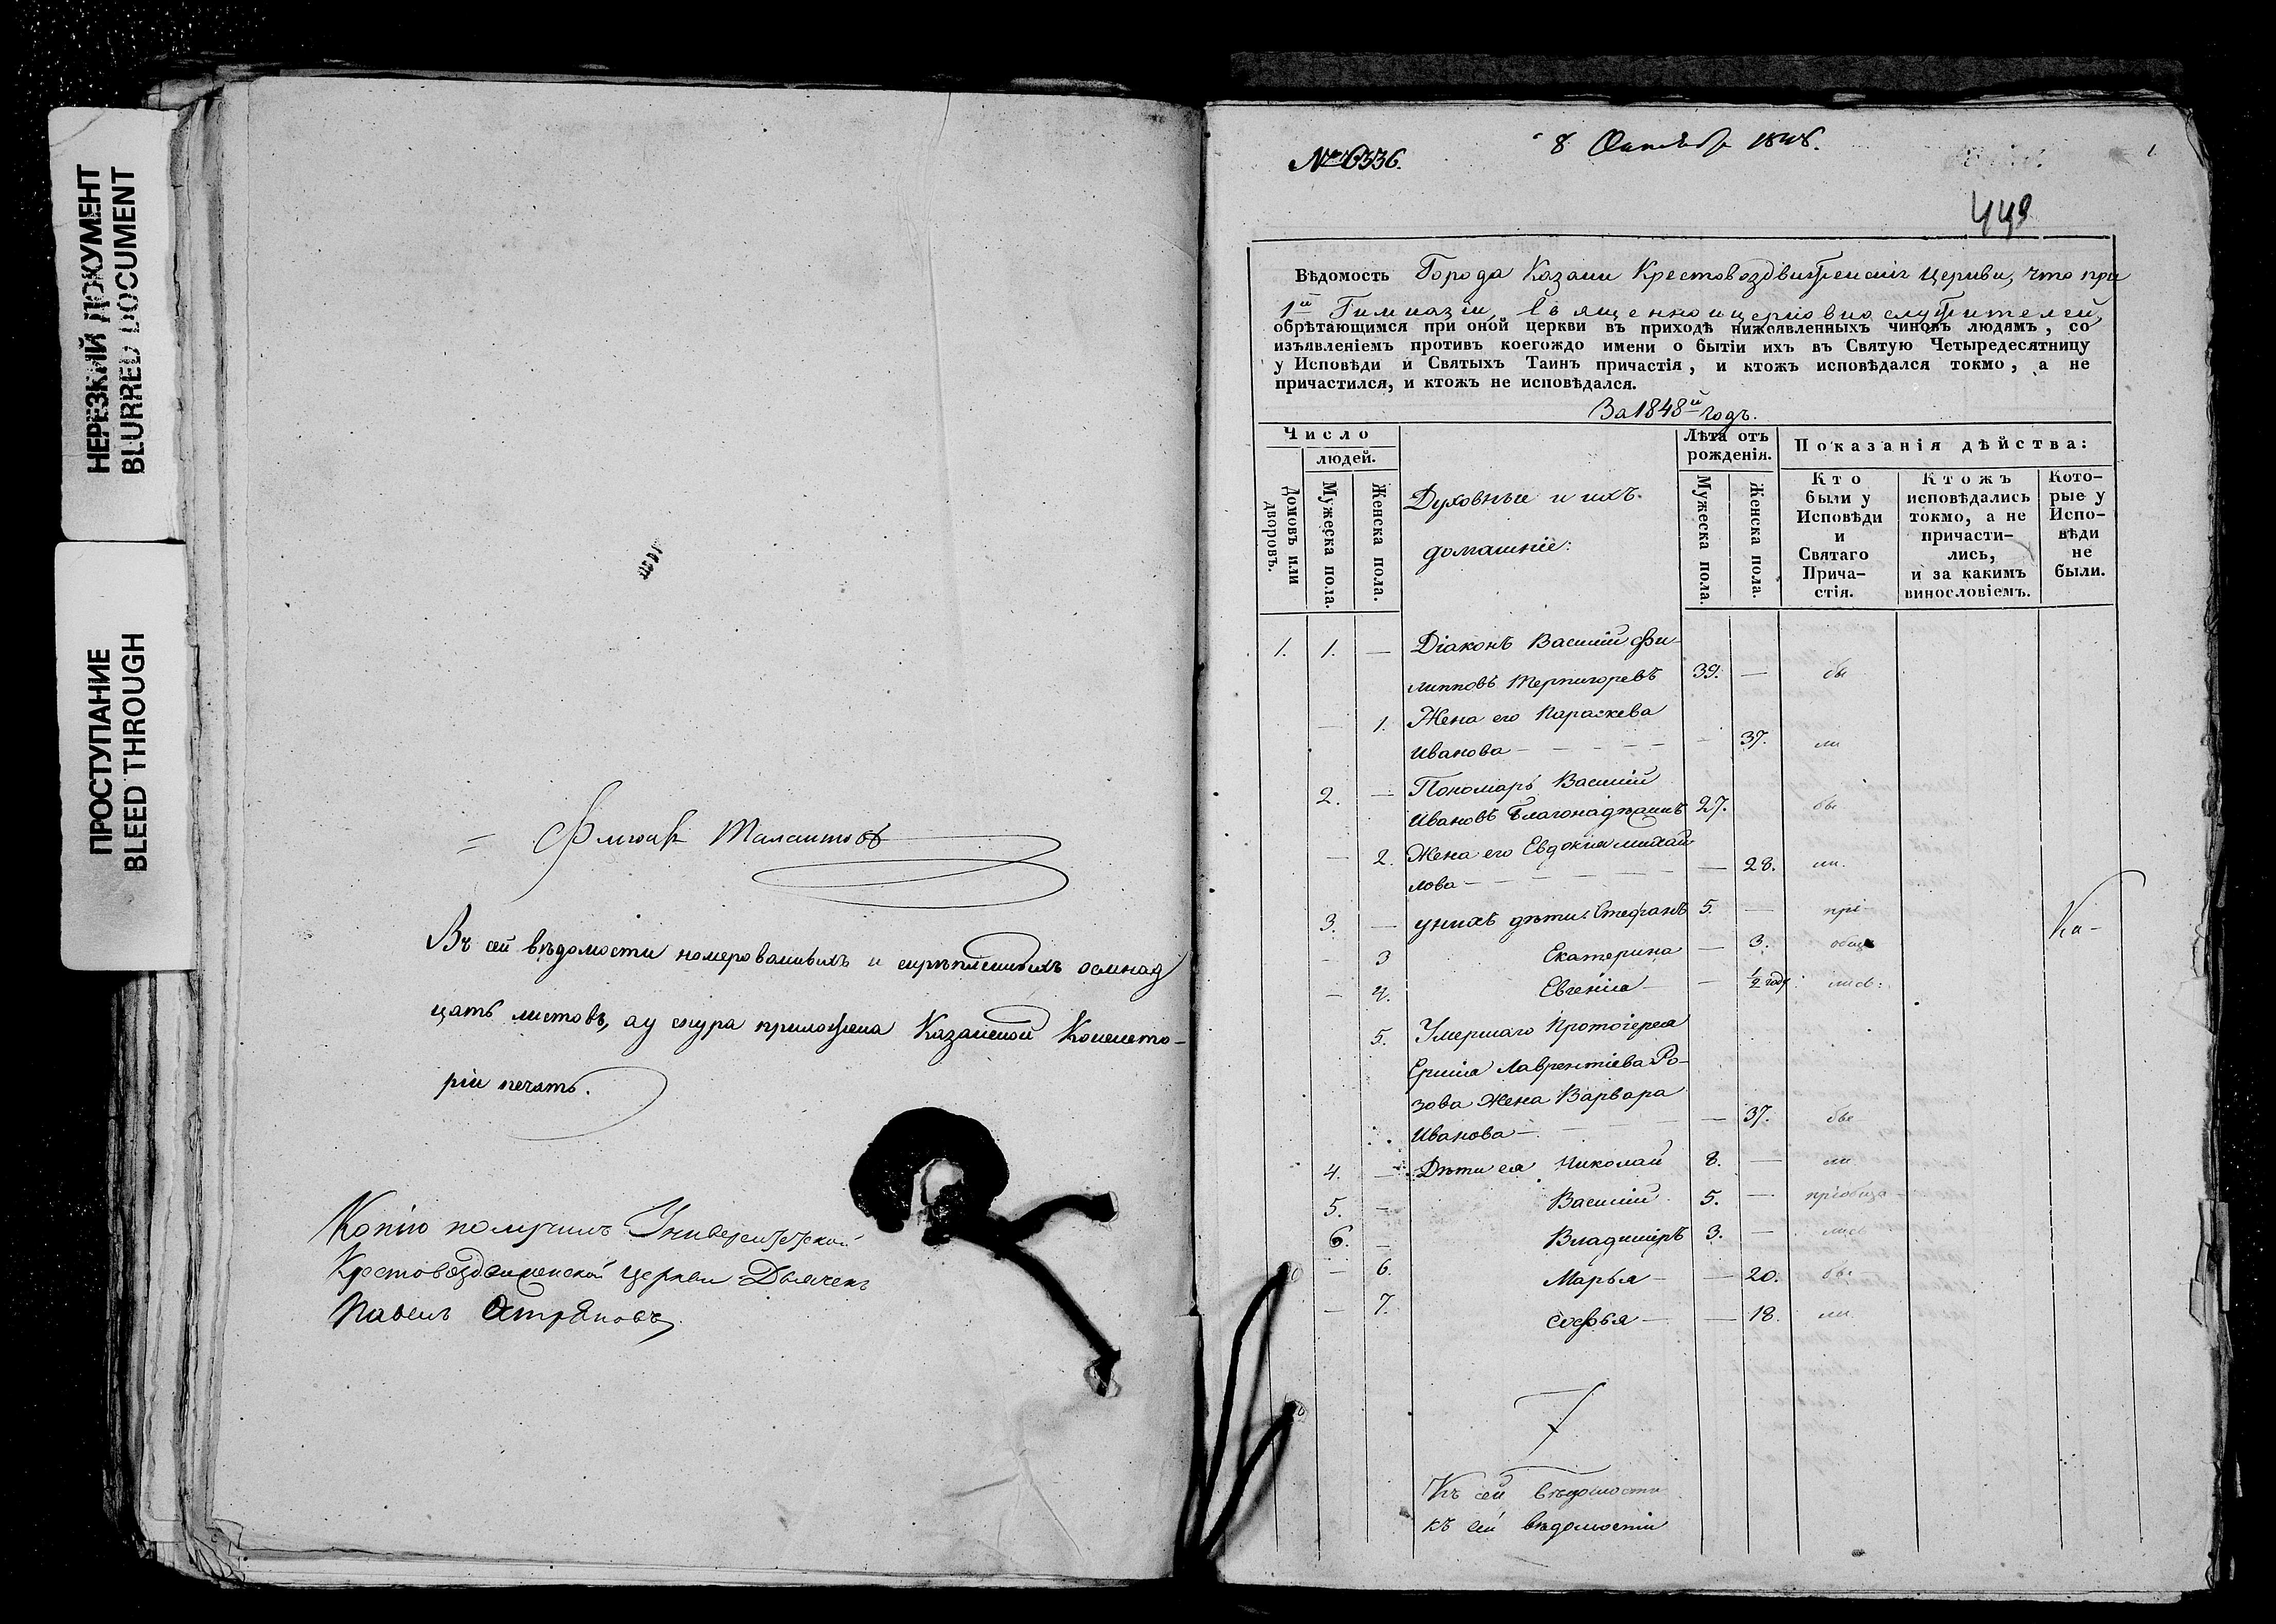 НЕРЕЗКИЙ ДОКУМЕНТ
BLURRED DOCUMENT
ПРОСТУПАНИЕ
BLEED THROUGH
Талантовъ
Въ сей вѣдомости номерованныхъ и скрѣпленныхъ осмнад
цать листовъ, а у снура приложена Казанской Консисто-
ріи печать.
Копію получилъ Университетской
Крестовоздвиженской церкви Дьячекъ
Павелъ
№ 6336.
8 Октября 1848.
449
Вѣдомость Города Казани Крестовоздвиженскія церкви, что при
1й Гимназіи, Священно и церковно служителей,
обрѣтающимся при оной церкви въ приходѣ нижеявленныхъ чиновъ людямъ, со
изъявленіемъ противъ коегождо имени о бытіи ихъ въ Святую Четыредесятницу
у Исповѣди и Святыхъ Таинъ причастія, и ктожъ исповѣдался токмо, а не
причастился, и ктожъ не исповѣдался.
За 1848й годъ.
Число
людей.
Домовъ или дворовъ.
Мужеска пола.
Женска пола.
Духовные и ихъ
домашніе:
Лѣта отъ рожденія.
Мужеска пола.
Женска пола.
Показанія дѣйства:
Кто были у Исповѣди и Святаго Прича-стія.
Ктожъ исповѣдались токмо, а не причасти-лись, и за какимъ винословіемъ.
Кото-рые у Испо-вѣди не были.
1. 1. — Діаконъ Василій Фи-
липповъ Терпигоревъ 39. — бы
— 1. Жена его Параскева
Иванова — — 37. ли
2. — Пономарь Василій
Ивановъ Благонадеждинъ 27. бы
— 2. Жена его Евдокія Михай-
лова — — 28. ли.
3. — У нихъ дѣти: Стефанъ 5. — прі-
— 3 Екатерина — 3. обща
— 4. Евгенія — — ½ году лись:
Ка-
5. Умершаго Протоіерея
Ермія Лаврентіева Ро-
зова Жена Варвара
Иванова — — 37. бы
4. — Дѣти ея Николай 8. — ли
5. — Василій 5. — пріобща
6. — Владиміръ 3. — лись
— 6. Марья — — 20. бы
— 7. Софья — — 18. ли
Къ сей вѣдомости
къ сей вѣдомости